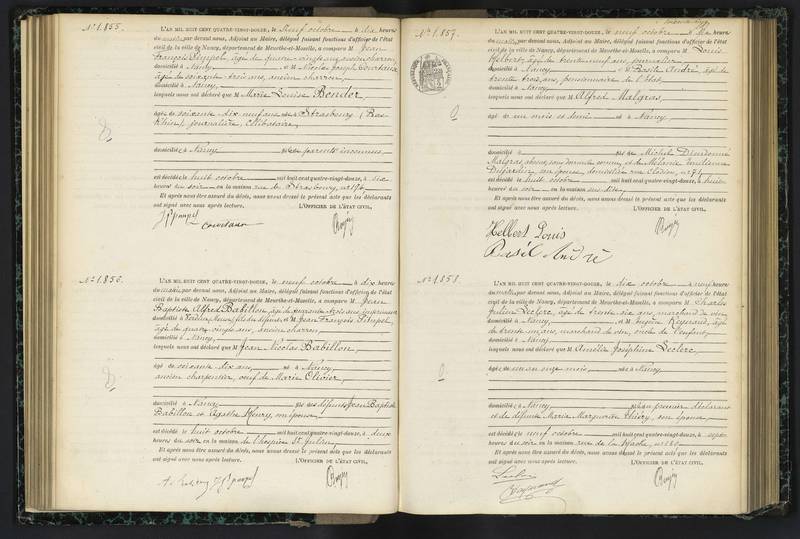 N° 1.855.
L'AN MIL HUIT CENT QUATRE-VINGT-DOUZE, le neuf octobre à dix heures
du matin par devant nous, Adjoint au Maire, délégué faisant fonctions d'officier de l'état
civil de la ville de Nancy, département de Meurthe-et-Moselle, a comparu M. Jean
François âgé de quatre-vingts ans, ancien charron,
domicilié à Nancy et M Nicolas Joseph
âgé de soixante trois ans, ancien charron,
domicilié à Nancy,
lesquels nous ont déclaré que M Marie Louise Bender,
âgée de soixante dix neuf ans née à Strasbourg (Bas-
Rhin), journalière, célibataire,
domiciliée à Nancy fille de parents inconnus,
est décédée le huit octobre mil huit cent quatre-vingt-douze, à six
heures du soir en la maison rue de Strasbourg, n°
Et après nous être assuré du décès, nous avons dressé le présent acte que les déclarants
ont signé avec nous après lecture. L'OFFICIER DE L'ÉTAT CIVIL,
N° 1.856.
L'AN MIL HUIT CENT QUATRE-VINGT-DOUZE, le neuf octobre à dix heures
du matin par devant nous, Adjoint au Maire, délégué faisant fonctions d'officier de l'état
civil de la ville de Nancy, département de Meurthe-et-Moselle, a comparu M. Jean
Baptiste Alfred Babillon, âgé de quarante trois ans,
domicilié à et M Jean François
âgé de quatre-vingts ans, ancien charron,
domicilié à Nancy,
lesquels nous ont déclaré que M Jean Nicolas Babillon,
âgé de soixante dix ans, né à Nancy,
ancien charpentier, veuf de Marie Olivier,
domicilié à Nancy fils des défunts Jean Baptiste
Babillon et Agathe Henry, son épouse,
est décédé le huit octobre mil huit cent quatre-vingt-douze, à deux
heures du soir en la maison de l'hospice St Julien,
Et après nous être assuré du décès, nous avons dressé le présent acte que les déclarants
ont signé avec nous après lecture. L'OFFICIER DE L'ÉTAT CIVIL,
N° 1.857.
L'AN MIL HUIT CENT QUATRE-VINGT-DOUZE, le neuf octobre à heures
du par devant nous, Adjoint au Maire, délégué faisant fonctions d'officier de l'état
civil de la ville de Nancy, département de Meurthe-et-Moselle, a comparu M. Louis
Helbert, âgé de trente neuf ans, journalier,
domicilié à Nancy et M Basile André, âgé de
trente trois ans, pensionnaire de l'état,
domicilié à Nancy,
lesquels nous ont déclaré que M Alfred Malgras,
âgé de un mois et demi né à Nancy,
domicilié à fils de Michel Dieudonné
Malgras, absent, sans domicile connu, et de Mélanie
Dujardin, son épouse, domiciliée rue
est décédé le huit octobre mil huit cent quatre-vingt-douze, à
heures du soir en la maison
Et après nous être assuré du décès, nous avons dressé le présent acte que les déclarants
ont signé avec nous après lecture. L'OFFICIER DE L'ÉTAT CIVIL,
Hellert Louis
Basil André
N° 1.858.
L'AN MIL HUIT CENT QUATRE-VINGT-DOUZE, le dix octobre à neuf heures
du matin par devant nous, Adjoint au Maire, délégué faisant fonctions d'officier de l'état
civil de la ville de Nancy, département de Meurthe-et-Moselle, a comparu M. Charles
Julien Leclerc, âgé de trente six ans, marchand de vin,
domicilié à Nancy et M Eugène âgé
de trente ans, marchand de vin, oncle de l'enfant,
domicilié à Nancy,
lesquels nous ont déclaré que M Amélie Joséphine Leclerc,
âgée de un an onze mois, née à Nancy,
domiciliée à Nancy fille du premier déclarant
et de défunte Marie Marguerite Thiéry, son épouse,
est décédée le neuf octobre mil huit cent quatre-vingt-douze, à sept
heures du soir en la maison rue de la Hache, n°
Et après nous être assuré du décès, nous avons dressé le présent acte que les déclarants
ont signé avec nous après lecture. L'OFFICIER DE L'ÉTAT CIVIL,